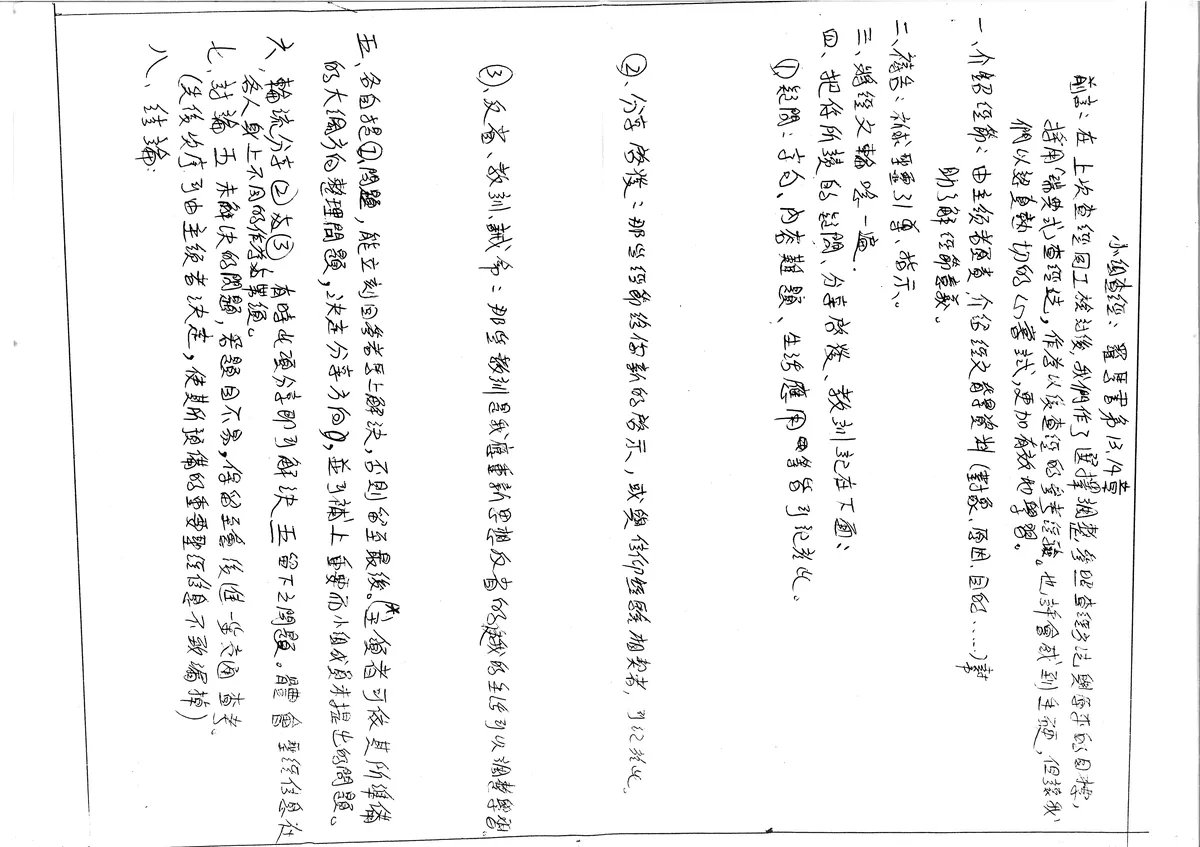 小組查經：羅馬書第13,14章
前言：在上次查經同工檢討後,我們作了選擇調整參照查經方法與所求的目標,
採用「瑞典式查經法」,作為以後查經的參考經驗。也許會感到生硬,但讓我
們以認真熱切的心嘗試,更加有效地學習。
一、介紹經節：由主領者負責,介紹經文背景資料(對象、原因、目的……)幫
助了解經節意義。
二、禱告：祈求聖靈引導、指示。
三、將經文輪唸一遍.
四、把你所讀的疑問、分享啟發、教訓記在下面：
①疑問：字句、內容難題、生活應用 等皆可記於此。
②、分享啟發：那些經節給你新的啟示,或與信仰經驗相契者,可記於此.
③、反省、教訓、誡命：那些教訓是我應重新思想反省的,我的生活可以調整學習.
五、各自提①問題,能立刻回答者馬上解決,否則留至最後。(主領者可依其所準備
的大綱方向整理問題,決定分享方向),並可補上重要而小組成員未提出的問題。
六、輪流分享②及③ 有時此項分享即可解決五留下之問題。體會聖經信息在
各人身上不同的作為與果效。
七、討論五未解決的問題,若題目不易,保留至會後進一步交通查考、
(先後次序可由主領者決定,使其所預備的重要聖經信息不致漏掉)
八、結論：